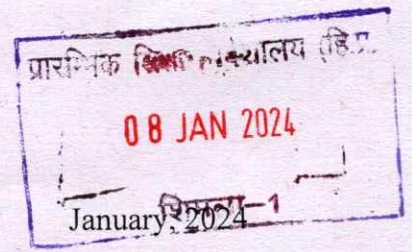 प्रारम्भिक शिक्षा (हि.प्र.
08 JAN 2024
शिमला-1
January, 2024